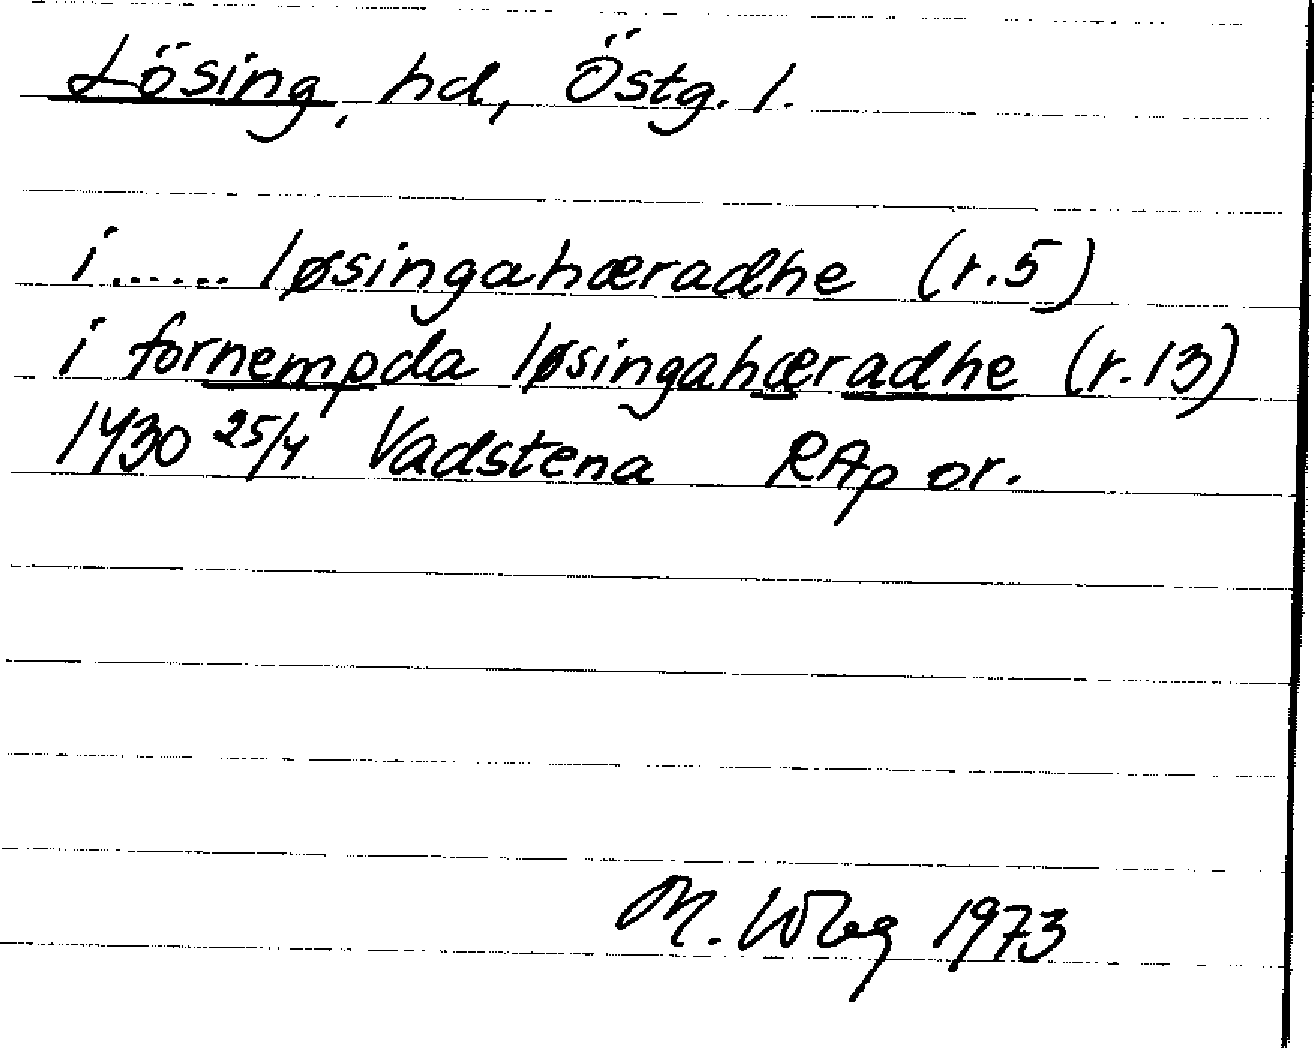 Lösing, hd, Östg. l.
i...... løsingahæradhe (r.5)
i fornempda løsingahæradhe (r.13)
1430 25/4 Vadstena RAp or.
M. Wbg 1973